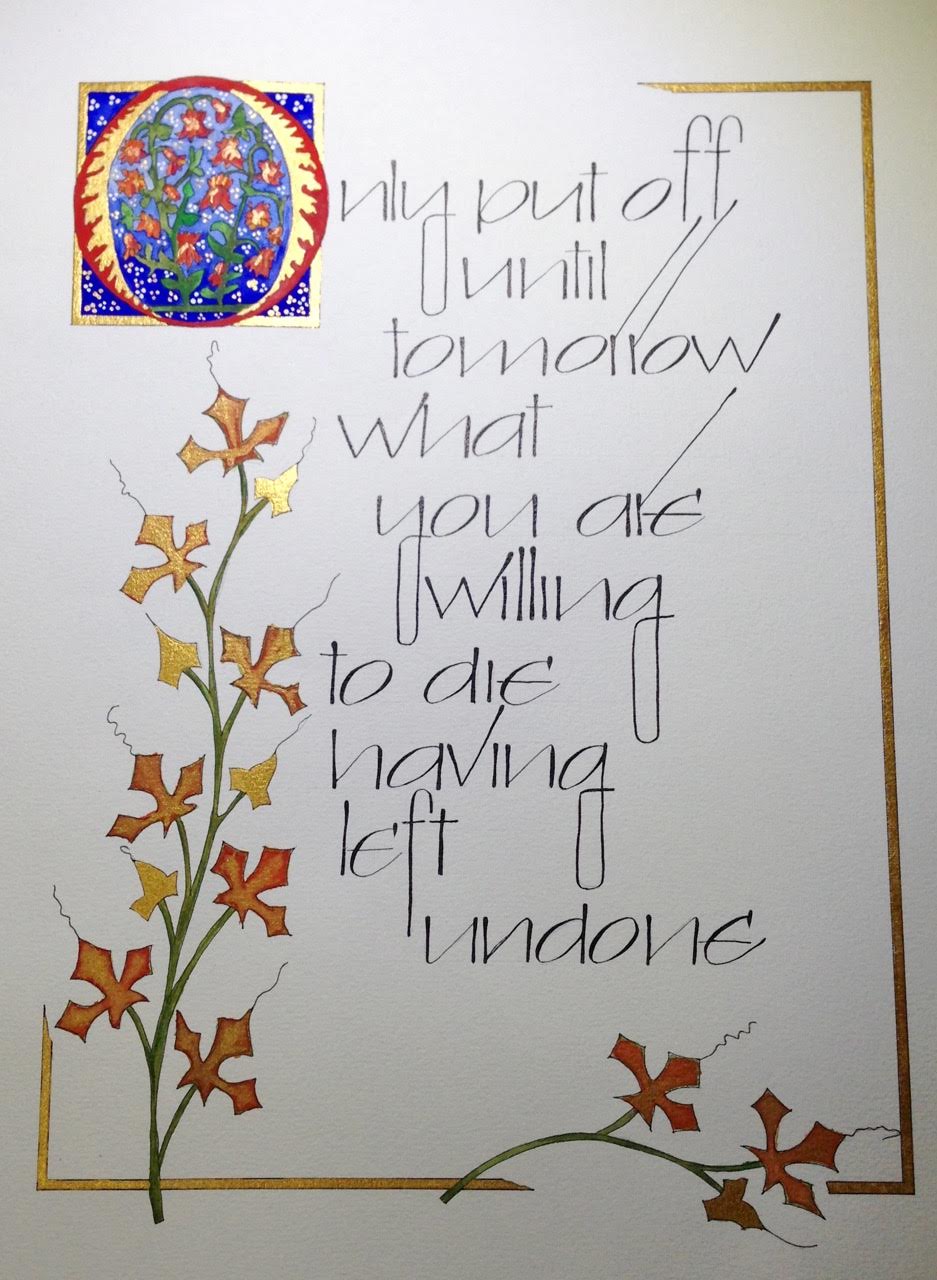 Only put off
until
tomorrow
what
you are
willing
to die
having
left
undone